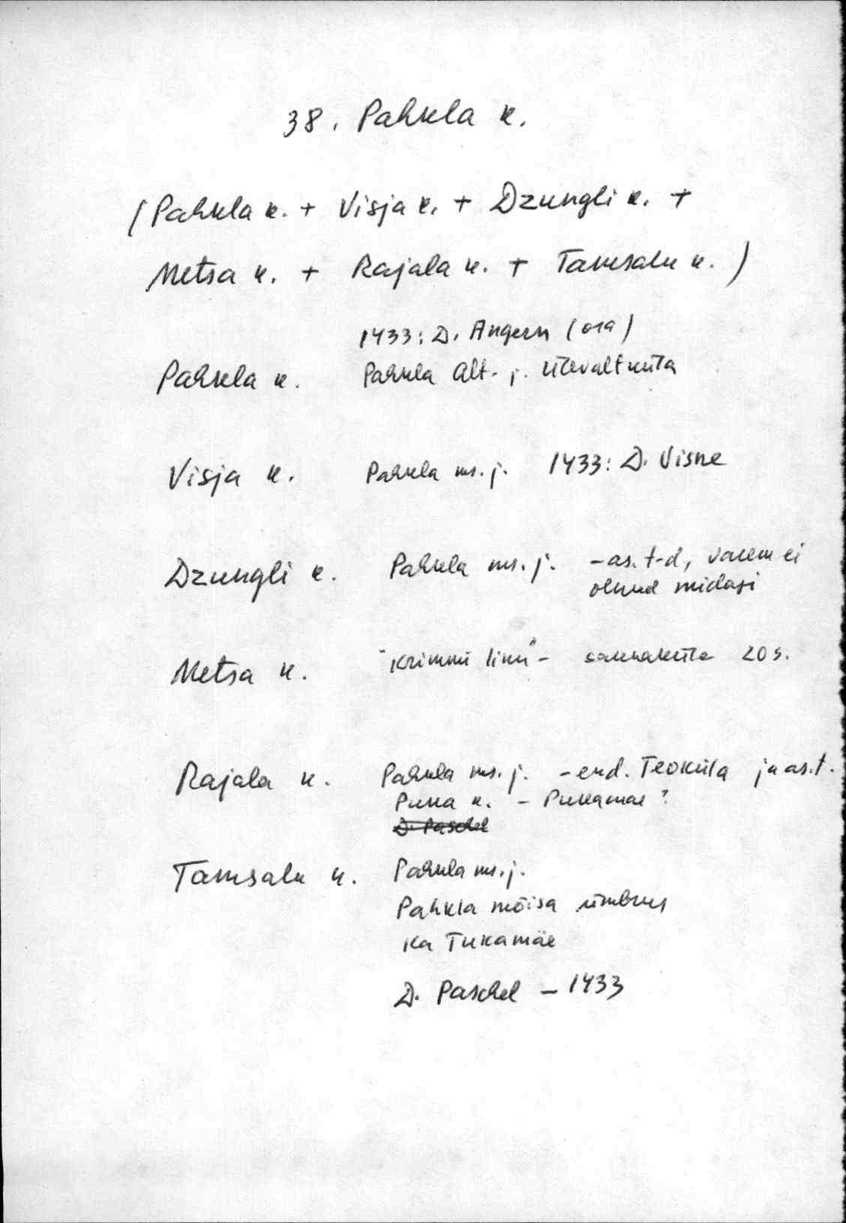 38. Pahkla k.
(Pahkla k. + Visja k. + Dzungli k. +
Metsa k. + Rajala k. + Tamsalu k. )
1433: D. Angern (osa)
Pahkla k. Pahkla Alt- j. Ülevaltküla
Visja k. Pahkla ms. j. 1433: D. Visne
Dzungli k. Pahkla ms. j. - as. t-d, varem ei
olnud midagi
Metsa k. "Krimmi linn" - saunaküla 20 s.
Rajala k. Pahkla ms. j. - end. Teoküla ja as.t.
Pukka k. - Pukamäe ?
D. Paschel
Tamsalu k. Pahkla ms. j.
Pahkla mõisa ümbrus
ka Tukamäe
D. Paschel - 1433